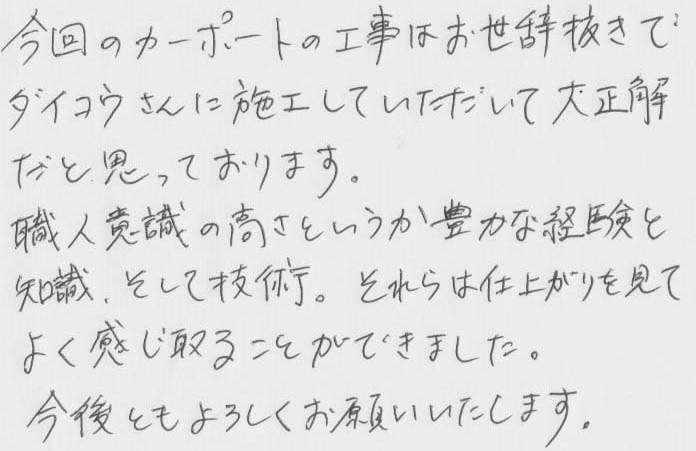 今回のカーポートの工事はお世辞抜きで
ダイコウさんに施工していただいて大正解
だと思っております。
職人意識の高さというか豊かな経験と
知識、そして技術。それらは仕上がりを見て
よく感じ取ることができました。
今後ともよろしくお願いいたします。